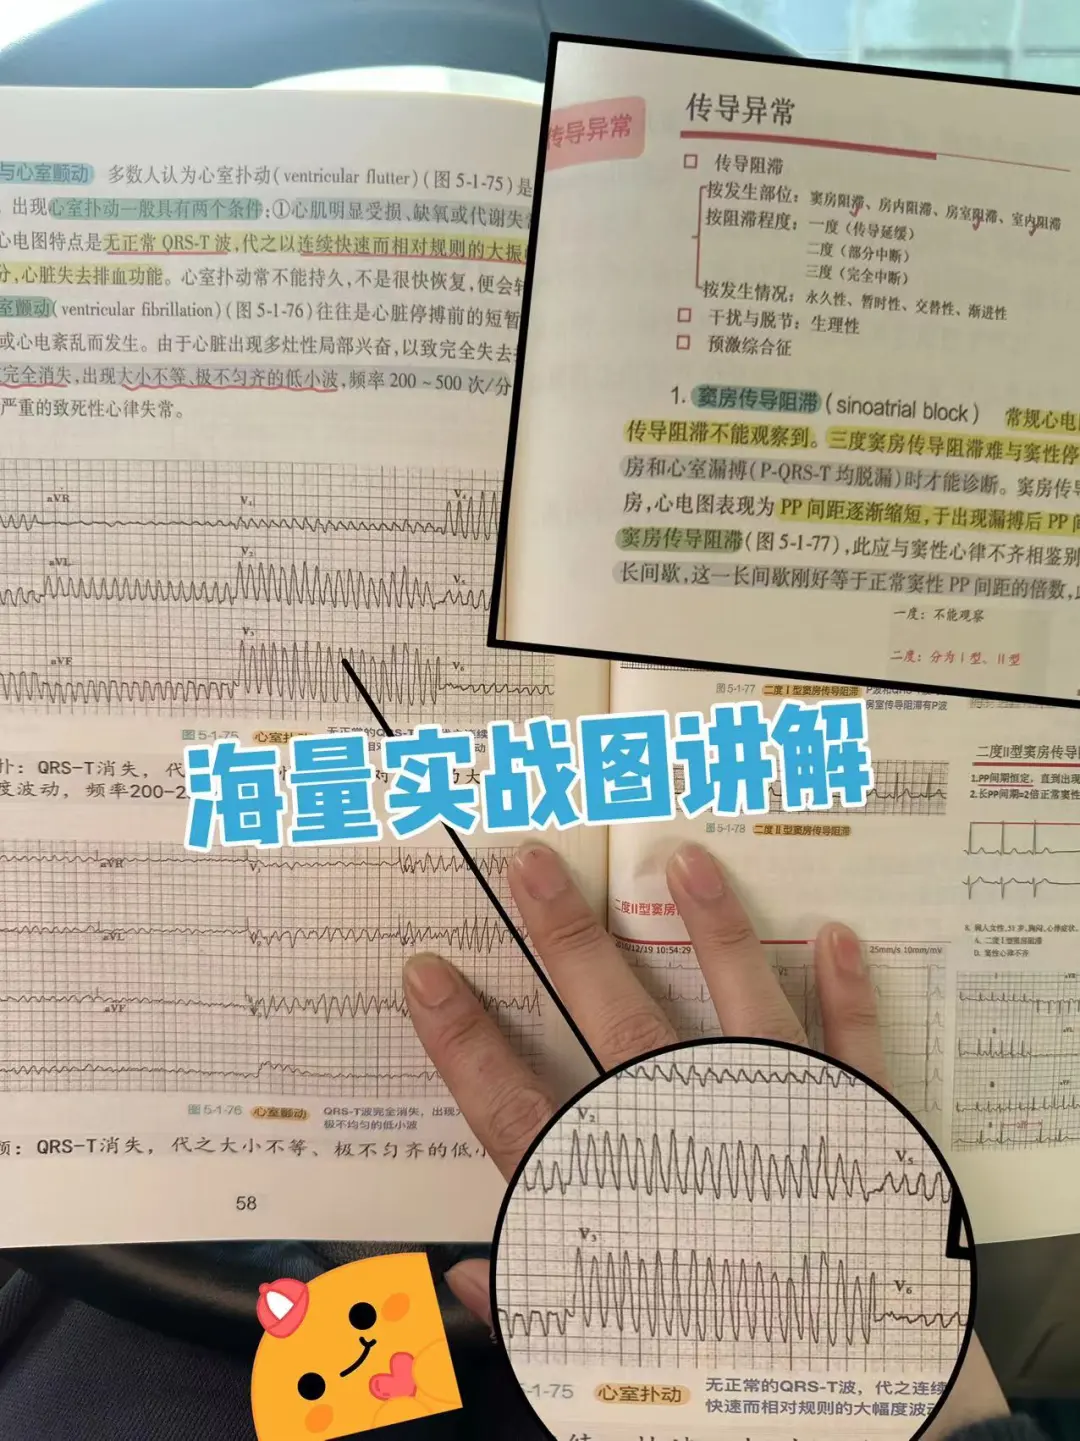 与心室颤动 多数人认为心室扑动(ventricular flutter)(图 5-1-75)是
出现心室扑动一般具有两个条件:①心肌明显受损、缺氧或代谢失常
心电图特点是无正常 QRS-T 波,代之以连续快速而相对规则的大振
分,心脏失去排血功能。心室扑动常不能持久,不是很快恢复,便会转
室颤动(ventricular fibrillation)(图 5-1-76)往往是心脏停搏前的短暂
或心电紊乱而发生。由于心脏出现多灶性局部兴奋,以致完全失去
完全消失,出现大小不等、极不匀齐的低小波,频率 200 ~ 500 次/分
严重的致死性心律失常。
aVR
V₁
V₄
aVL
V₂
V₅
aVF
V₃
V₆
图 5-1-75 心室扑动
扑: QRS-T消失, 代
度波动, 频率200-2
aVR
V₁
aVL
aVF
图 5-1-76 心室颤动 QRS-T波完全消失, 出现
极不均匀的低小波
颤: QRS-T消失, 代之大小不等、极不匀齐的低小
58
传导异常
传导异常
传导阻滞
按发生部位: 窦房阻滞、房内阻滞、房室阻滞、室内阻滞
按阻滞程度: 一度 (传导延缓)
二度 (部分中断)
三度 (完全中断)
按发生情况: 永久性、暂时性、交替性、渐进性
干扰与脱节: 生理性
预激综合征
1. 窦房传导阻滞(sinoatrial block) 常规心电
传导阻滞不能观察到。三度窦房传导阻滞难与窦性停
房和心室漏搏(P-QRS-T 均脱漏)时才能诊断。窦房传导
房,心电图表现为 PP 间距逐渐缩短,于出现漏搏后 PP 间
窦房传导阻滞(图 5-1-77),此应与窦性心律不齐相鉴别
长间歇,这一长间歇刚好等于正常窦性 PP 间距的倍数,
一度: 不能观察
二度: 分为Ⅰ型、Ⅱ型
图 5-1-77 二度Ⅰ型窦房传导阻滞
房室传导阻滞有P波
海量实战图讲解
图 5-1-78 二度Ⅱ型窦房传导阻滞
二度II型窦房传导
1.PP间期恒定, 直到出现
2.长PP间期=2倍正常窦性
二度II型窦房
2016/12/19 10:54:29
25mm/s 10mm/mV
A. 二度Ⅰ型窦房阻滞
D. 窦性心律不齐
V₂
V₅
V₃
V₆
5-1-75 心室扑动 无正常的QRS-T波, 代之连续
快速而相对规则的大幅度波动